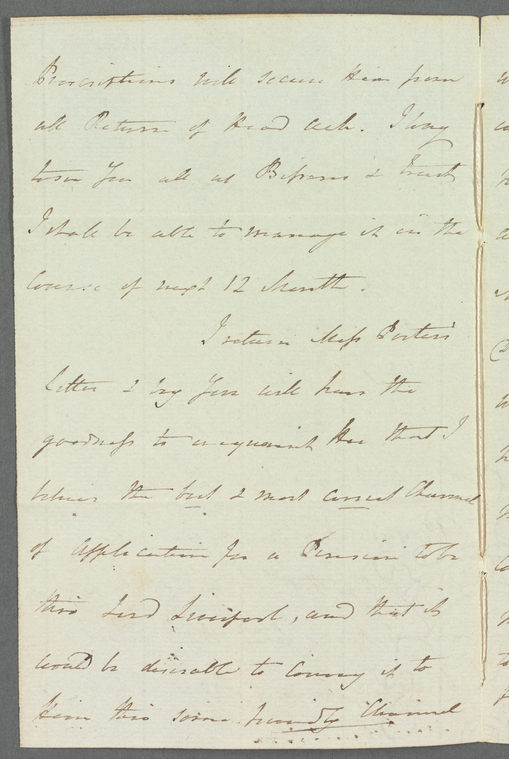 Proscriptions will secure Him from
all Return of Head Ach. I long
to see You all at & trust
I shall be able to manage it in the
Course of next 12 Month.
I return Miss Porter's
letter & beg You will have the
goodness to acquaint Her that I
believe the best & most correct Channel
of Application for a Pension to be
thro Lord Liverpool, and that it
would be desirable to Convey it to
Him thro some friendly Channel